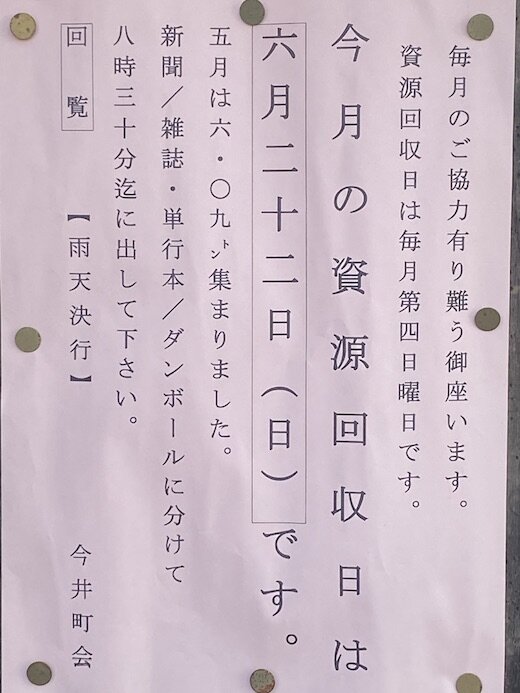 毎月のご協力有り難う御座います。
資源回収日は毎月第四日曜日です。
今月の資源回収日は
六月二十二日（日）です。
五月は六・〇九㌧集まりました。
新聞／雑誌・単行本／ダンボールに分けて
八時三十分迄に出して下さい。
回覧【雨天決行】今井町会